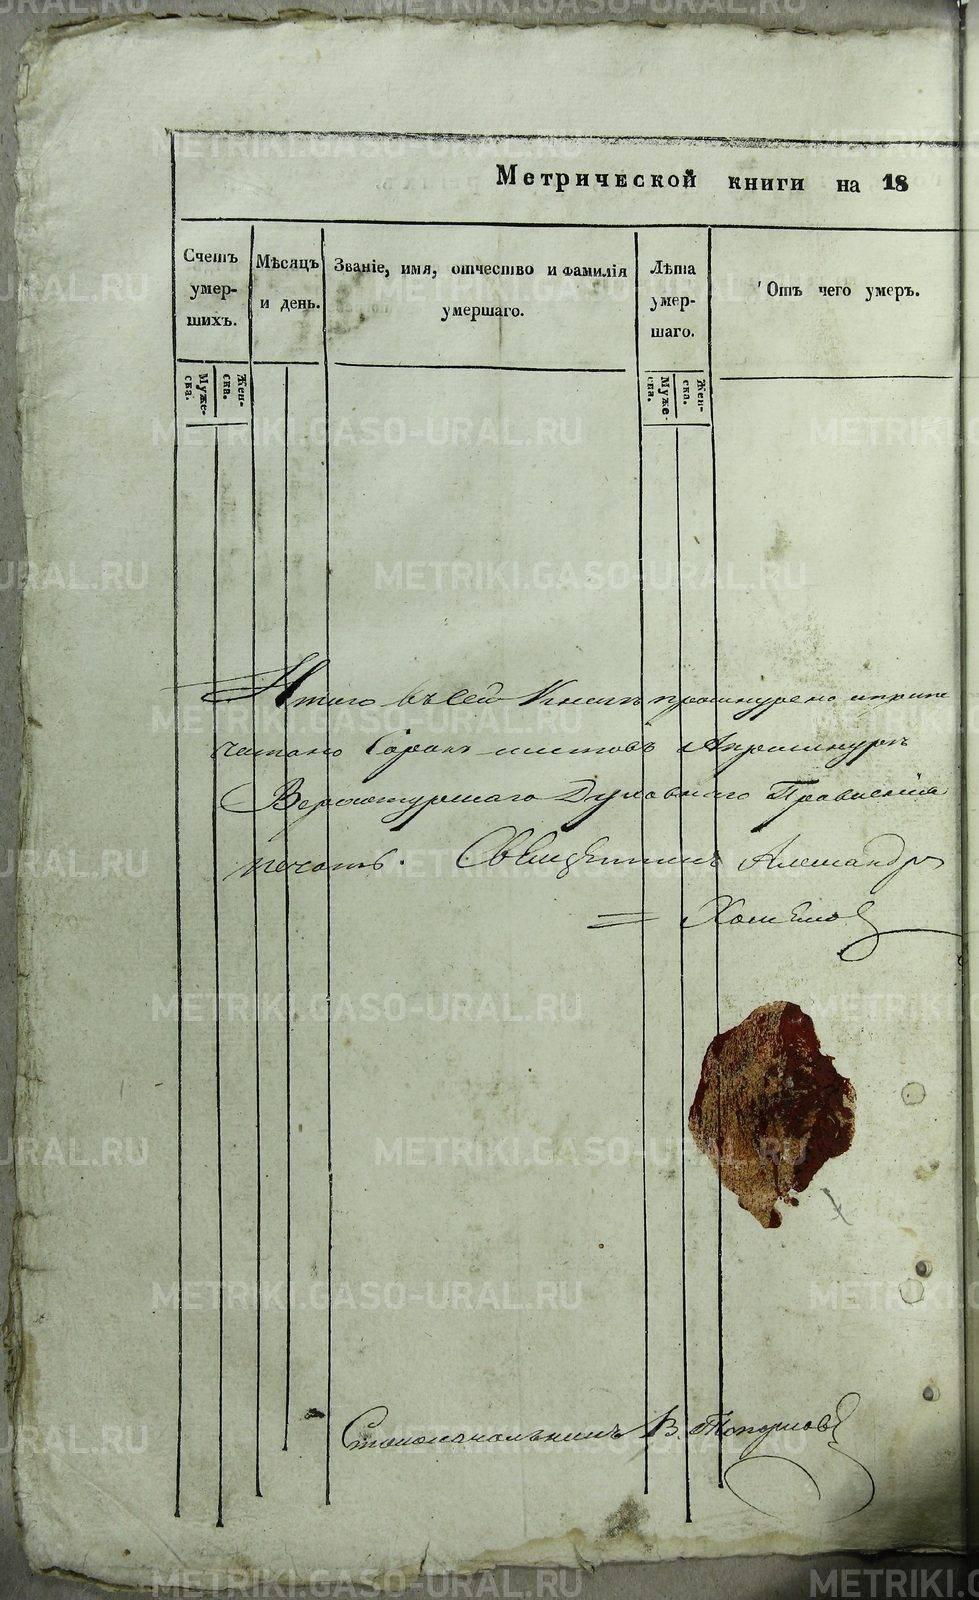 Метрической книги на 18
Счетъ умер-
шихъ.
Мѣсяцъ
и день.
Званіе, имя, отчество и фамилія
умершаго.
Лѣта
умер-
шаго.
Отъ чего умеръ.
Муже-
ска.
Жен-
ска.
Муже-
ска.
Жен-
ска.
Итого въ сей Книгѣ прошнурено и припе
чатано Сорокъ листовъ
Верхотурскаго Духовнаго Правленія
печать. Священникъ Александръ
Столоначальникъ В. Топорковъ
METRIKI.GASO-URAL.RU